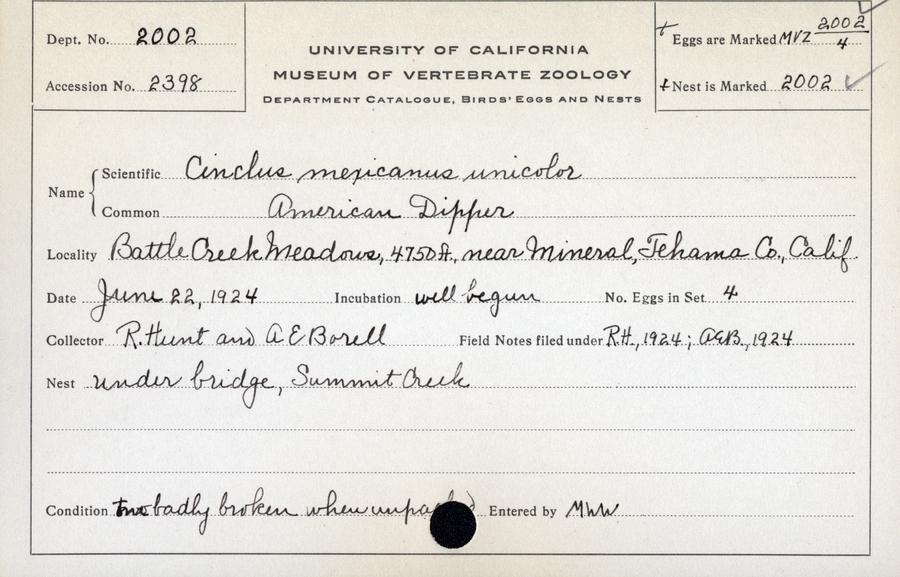 Dept. No. 2002
Accession No. 2398
UNIVERSITY OF CALIFORNIA
MUSEUM OF VERTEBRATE ZOOLOGY
DEPARTMENT CATALOGUE, BIRDS' EGGS AND NESTS
+ Eggs are Marked MVZ 2002/4
+ Nest is Marked 2002 ✓
Name { Scientific Cinclus mexicanus unicolor
Common American Dipper
Locality Battle Creek Meadows, 4750 ft., near Mineral, Tehama Co., Calif.
Date June 22, 1924 Incubation well begun No. Eggs in Set 4
Collector R. Hunt and A E Borell Field Notes filed under R.H., 1924; A.E.B., 1924
Nest under bridge, Summit Creek
Condition two badly broken when Entered by MWW